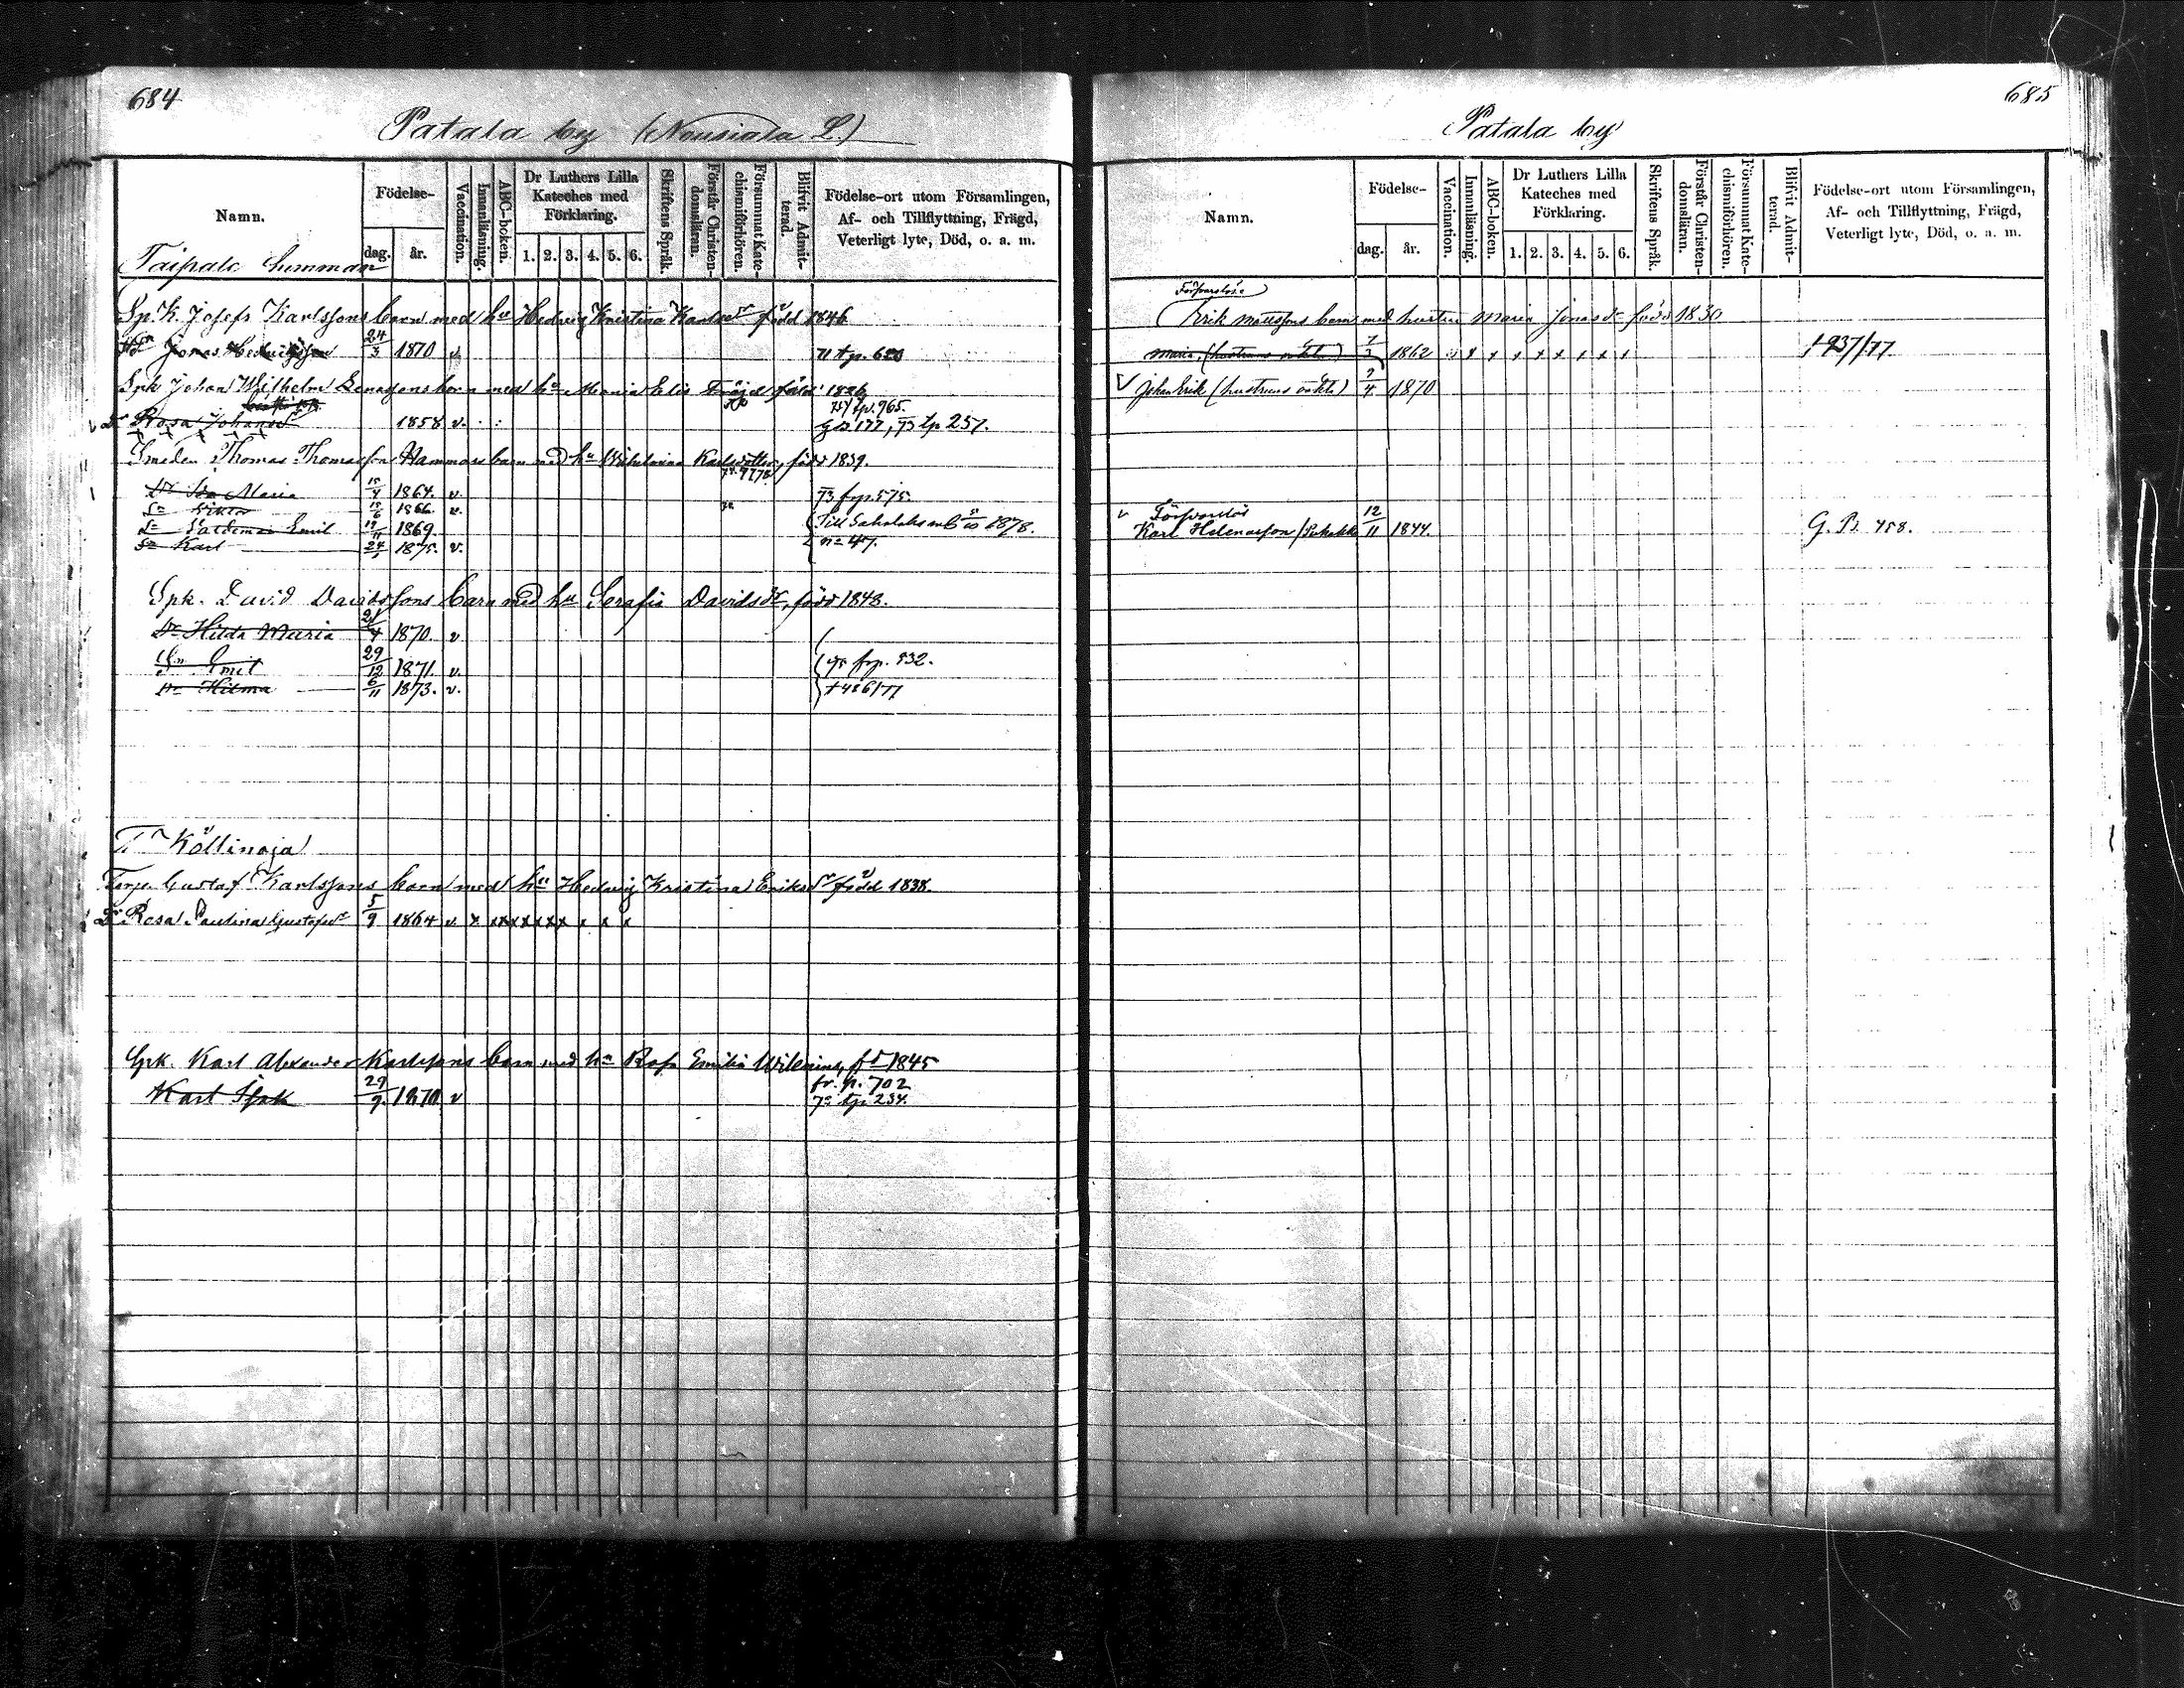 684
Patala by (Nousiala L.)
Namn.
Födelse-
dag.
år.
Vaccination.
Innanläsning.
ABC-boken.
Dr Luthers Lilla Kateches med Förklaring.
1. 2. 3. 4. 5. 6.
Skriftens Språk.
Förstår Christen-domsläran.
Försummat Kate-chismiförhören.
Blifvit Admit-terad.
Födelse-ort utom Församlingen, Af- och Tillflyttning, Frägd, Veterligt lyte, Död, o. a. m.
Taipale
Sp.K. Josefs Karlssons barn med hu Hedvig Kristina Karlsdr född 1846
Jonas 24/3 1870 v. 71 tp. 680
Spk Johan Wilhelm barn med hu Maria Elis född 1826
751 fp. 965.
Dr Rosa Johansdr 1858 v. g B 177, 73 tp 257.
Smeden Thomas Thomasson Hammars barn med hu Wilhelmina Karlsdotter, född 1839.
Dr Ida Maria 15/4 1864. v. 73 frp. 575.
Sn Viktor 19/6 1866. v.
Sn Valdemar Emil 19/11 1869. Till 1878.
Sn Karl 24/1 1875. v. no 47.
Spk. David Davidssons barn med hu Serafia Davidsdr, född 1848.
Dr Hilda Maria 21/4 1870. v
Sn Emil 29/12 1871. v. frp. 932.
Dr Hilma 6/11 1873. v. † 486/77
Tp Källinoja
Torp. Gustaf Karlssons barn med hu Hedvig Kristina Eriksdr född 1838.
Dr Rosa Paulina Gustafsdr 5/9 1864 v x x x x x x x x x x
Spk. Karl Alexander Karlssons barn med hu Rosa Emilia Wilenius, fd 1845
fr. p. 702
Karl Isak 29/9. 1870 v 73 tp 234.
685
Patala by
Namn.
Födelse-
dag.
år.
Vaccination.
Innanläsning.
ABC-boken.
Dr Luthers Lilla Kateches med Förklaring.
1. 2. 3. 4. 5. 6.
Skriftens Språk.
Förstår Christen-domsläran.
Försummat Kate-chismiförhören.
Blifvit Admit-terad.
Födelse-ort utom Församlingen, Af- och Tillflyttning, Frägd, Veterligt lyte, Död, o. a. m.
Försvarslöse
Erik Mattssons barn med hustru Maria Jonasdr född 1830
Maria, (hustruns oäkta) 7/3 1862 v x x x x x x x x † 937/77.
v Johan Erik (hustruns oäkta) 7/4 1870
v Försvarslös
Karl Helenasson 12/11 1844. G. B. 458.